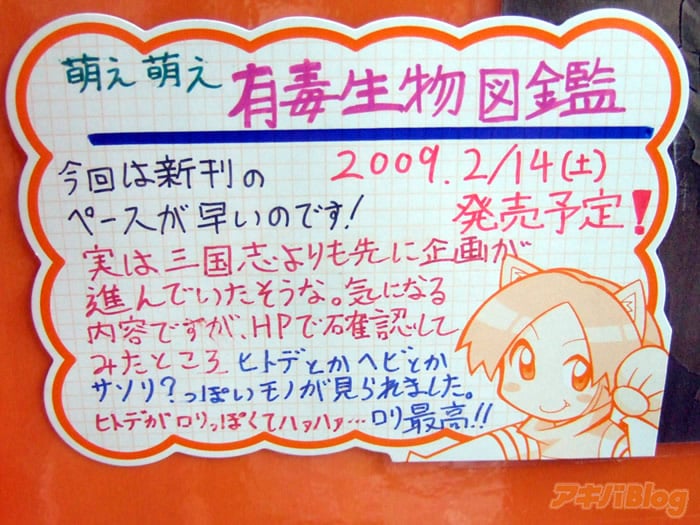 萌え萌え 有毒生物図鑑
今回は新刊の
ペースが早いのです!
2009. 2/14(土)
発売予定!
実は三国志よりも先に企画が
進んでいたそうな。気になる
内容ですが、HPで確認して
みたところ ヒトデとかヘビとか
サソリ?っぽいモノが見られました。
ヒトデがロリっぽくてハァハァ…ロリ最高!!
アキバBlog